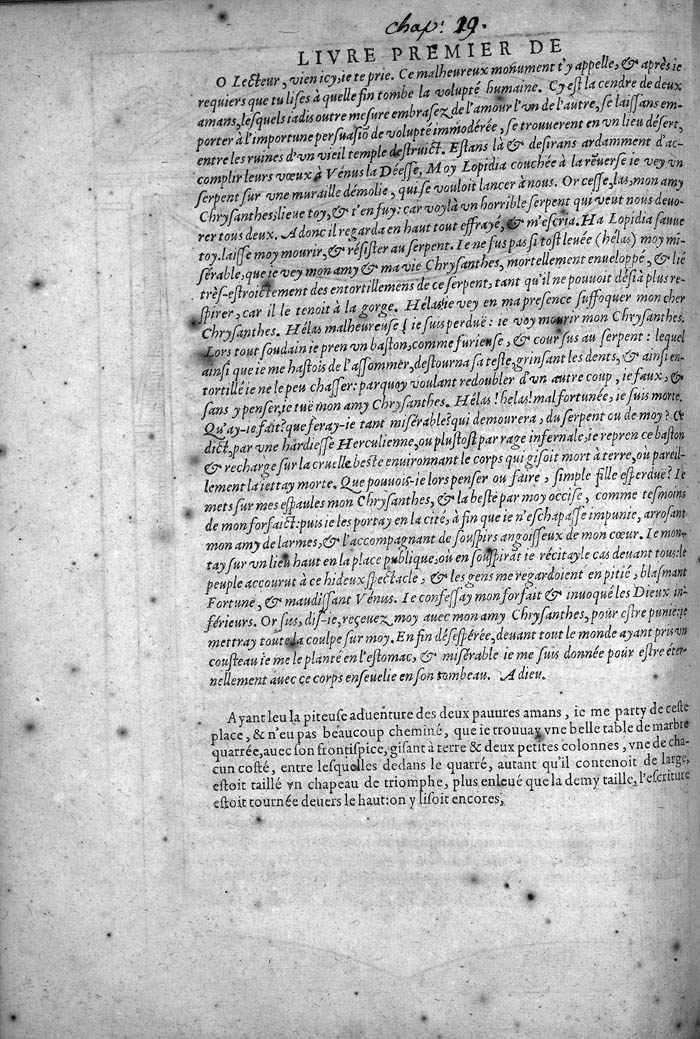 chap: 19.
LIVRE PREMIER DE
O Lecteur, vien icy, ie te prie. Ce malheureux monument t'y appelle, & après ie
requiers que tu lises à quelle fin tombe la volupté humaine. Cy est la cendre de deux
amans, lesquels iadis outre mesure embrasez de l'amour l'vn de l'autre, se laissans em-
porter à l'importune persuasiō de volupté immodérée, se trouuerent en vn lieu désert,
entre les ruines d'vn vieil temple destruict. Estans là & desirans ardamment d'ac-
complir leurs vœux à Vénus la Déesse, Moy Lopidia couchée à la rēuerse ie vey vn
serpent sur vne muraille démolie, qui se vouloit lancer à nous. Or cesse, las, mon amy
Chrysanthes, lieue toy, & t'en fuy: car voylà vn horrible serpent qui veut nous deuo-
rer tous deux. A donc il regarda en haut tout effrayé, & m'escria. Ha Lopidia sauue
toy. laisse moy mourir, & résister au serpent. Ie ne fus pas si tost leuée (hélas) moy mi-
sérable, que ie vey mon amy & ma vie Chrysanthes, mortellement enueloppé, & lié
très-estroictement des entortillemens de ce serpent, tant qu'il ne pouuoit désia plus re-
spirer, car il le tenoit à la gorge. Hélas ie vey en ma presence suffoquer mon cher
Chrysanthes. Hélas malheureuse! ie suis perduë: ie voy mourir mon Chrysanthes.
Lors tout soudain ie pren vn baston, comme furieuse, & cour sus au serpent: lequel
ainsi que ie me hastois de l'assommer, destourna sa teste, grinsant les dents, & ainsi en-
tortillé ie ne le peu chasser: parquoy voulant redoubler d'vn autre coup, ie faux, &
sans y penser, ie tuë mon amy Chrysanthes. Hélas! helas! mal fortunée, ie suis morte.
Qu'ay-ie fait? que feray-ie tant misérable? qui demourera, du serpent ou de moy? Ce
dict, par vne hardiesse Herculienne, ou plustost par rage infernale, ie repren ce baston
& recharge sur la cruelle beste enuironnant le corps qui gisoit mort à terre, où pareil-
lement la iettay morte. Que pouuois-ie lors penser ou faire, simple fille esperduë? Ie
mets sur mes espaules mon Chrysanthes, & la beste par moy occise, comme tesmoins
de mon forfaict: puis ie les portay en la cité, à fin que ie n'eschapasse impunie, arrosant
mon amy de larmes, & l'accompagnant de souspirs angoisseux de mon cœur. Ie mon-
tay sur vn lieu haut en la place publique, où en souspirāt ie récitay le cas deuant tous: le
peuple accourut à ce hideux spectacle, & les gens me regardoient en pitié, blasmant
Fortune, & maudissant Vénus. Ie confessay mon forfait & inuoqué les Dieux in-
férieurs. Or sus, dis-ie, reçeuez moy auec mon amy Chrysanthes, pour estre punie: ie
mettray toute la coulpe sur moy. En fin désespérée, deuant tout le monde ayant pris vn
cousteau ie me le planté en l'estomac, & misérable ie me suis donnée pour estre éter-
nellement auec ce corps enseuelie en son tombeau. A dieu.
Ayant leu la piteuse aduenture des deux pauures amans, ie me party de ceste
place, & n'eu pas beaucoup cheminé, que ie trouuay vne belle table de marbre
quarrée, auec son frontispice, gisant à terre & deux petites colonnes, vne de cha-
cun costé, entre lesquelles dedans le quarré, autant qu'il contenoit de large,
estoit taillé vn chapeau de triomphe, plus enleué que la demy taille, l'escriture
estoit tournée deuers le haut: on y lisoit encores,